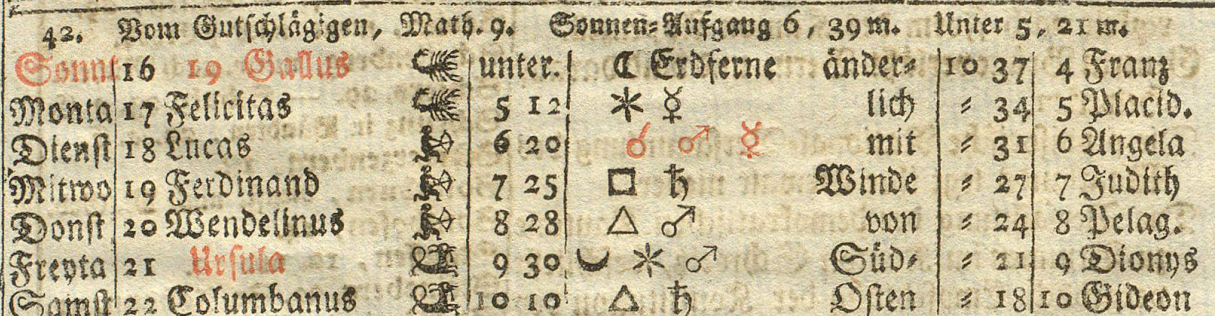 42. Vom Gutschlägigen, Math. 9. Sonnen-Aufgang 6, 39 m. Unter 5, 21 m.
Sonnt 16 19 Gallus unter. ☾ Erdferne änder- 10 37 4 Franz
Monta 17 Felicitas 5 12 ⚹ ☿ lich = 34 5 Placid.
Dienst 18 Lucas 6 20 ☌ ♂ ☿ mit = 31 6 Angela
Mitwo 19 Ferdinand 7 25 □ ♄ Winde = 27 7 Judith
Donst 20 Wendelinus 8 28 △ ♂ von = 24 8 Pelag.
Freyta 21 Ursula 9 30 ⚹ ♂ Süd- = 21 9 Dionys
Samst 22 Columbanus 10 10 △ ♄ Osten = 18 10 Gideon